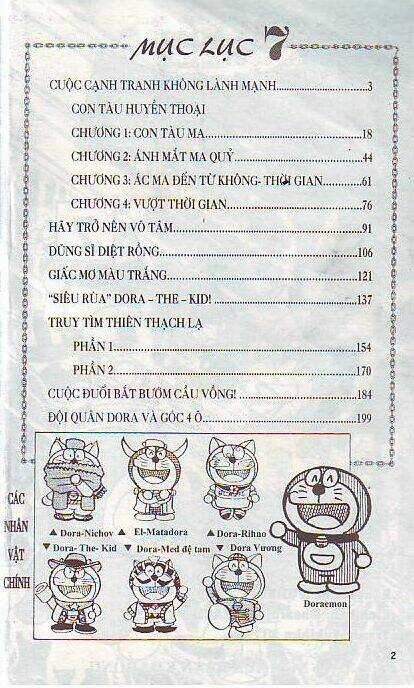 MỤC LỤC 7
CUỘC CẠNH TRANH KHÔNG LÀNH MẠNH....................3
CON TÀU HUYỀN THOẠI
CHƯƠNG 1: CON TÀU MA....................18
CHƯƠNG 2: ÁNH MẮT MA QUỶ....................44
CHƯƠNG 3: ÁC MA ĐẾN TỪ KHÔNG- THỜI GIAN..........61
CHƯƠNG 4: VƯỢT THỜI GIAN....................76
HÃY TRỞ NÊN VÔ TÂM....................91
DŨNG SĨ DIỆT RỒNG....................106
GIẤC MƠ MÀU TRẮNG....................121
“SIÊU RÙA” DORA – THE – KID!....................137
TRUY TÌM THIÊN THẠCH LẠ
PHẦN 1....................154
PHẦN 2....................170
CUỘC ĐUỔI BẮT BƯƠM CẦU VỒNG!....................184
ĐỘI QUÂN DORA VÀ GÓC 4 Ô....................199
CÁC
NHÂN
VẬT
CHÍNH
▲ Dora-Nichov ▲ El-Matadora ▲ Dora-Rinho
▼ Dora- The- Kid ▼ Dora-Med đệ tam ▼ Dora Vương
Doraemon
2